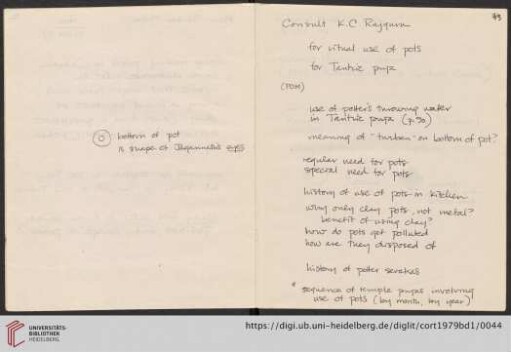 bottom of pot
is shape of Jagannath's eyes
49
Consult K.C. Rajguru
for ritual use of pots
for Tantric puja
(TOM)
use of potter's throwing water
in Tantric puja (p.30)
meaning of "turban" on bottom of pot?
regular need for pots
special need for pots
history of use of pots in kitchen
why only clay pots, not metal?
benefit of using clay?
how do pots get polluted
how are they disposed of
history of potter sevakas
* sequence of temple pujas involving
use of pots (by month, by year)
UNIVERSITÄTS-
BIBLIOTHEK
HEIDELBERG
https://digi.ub.uni-heidelberg.de/diglit/cort1979bd1/0044